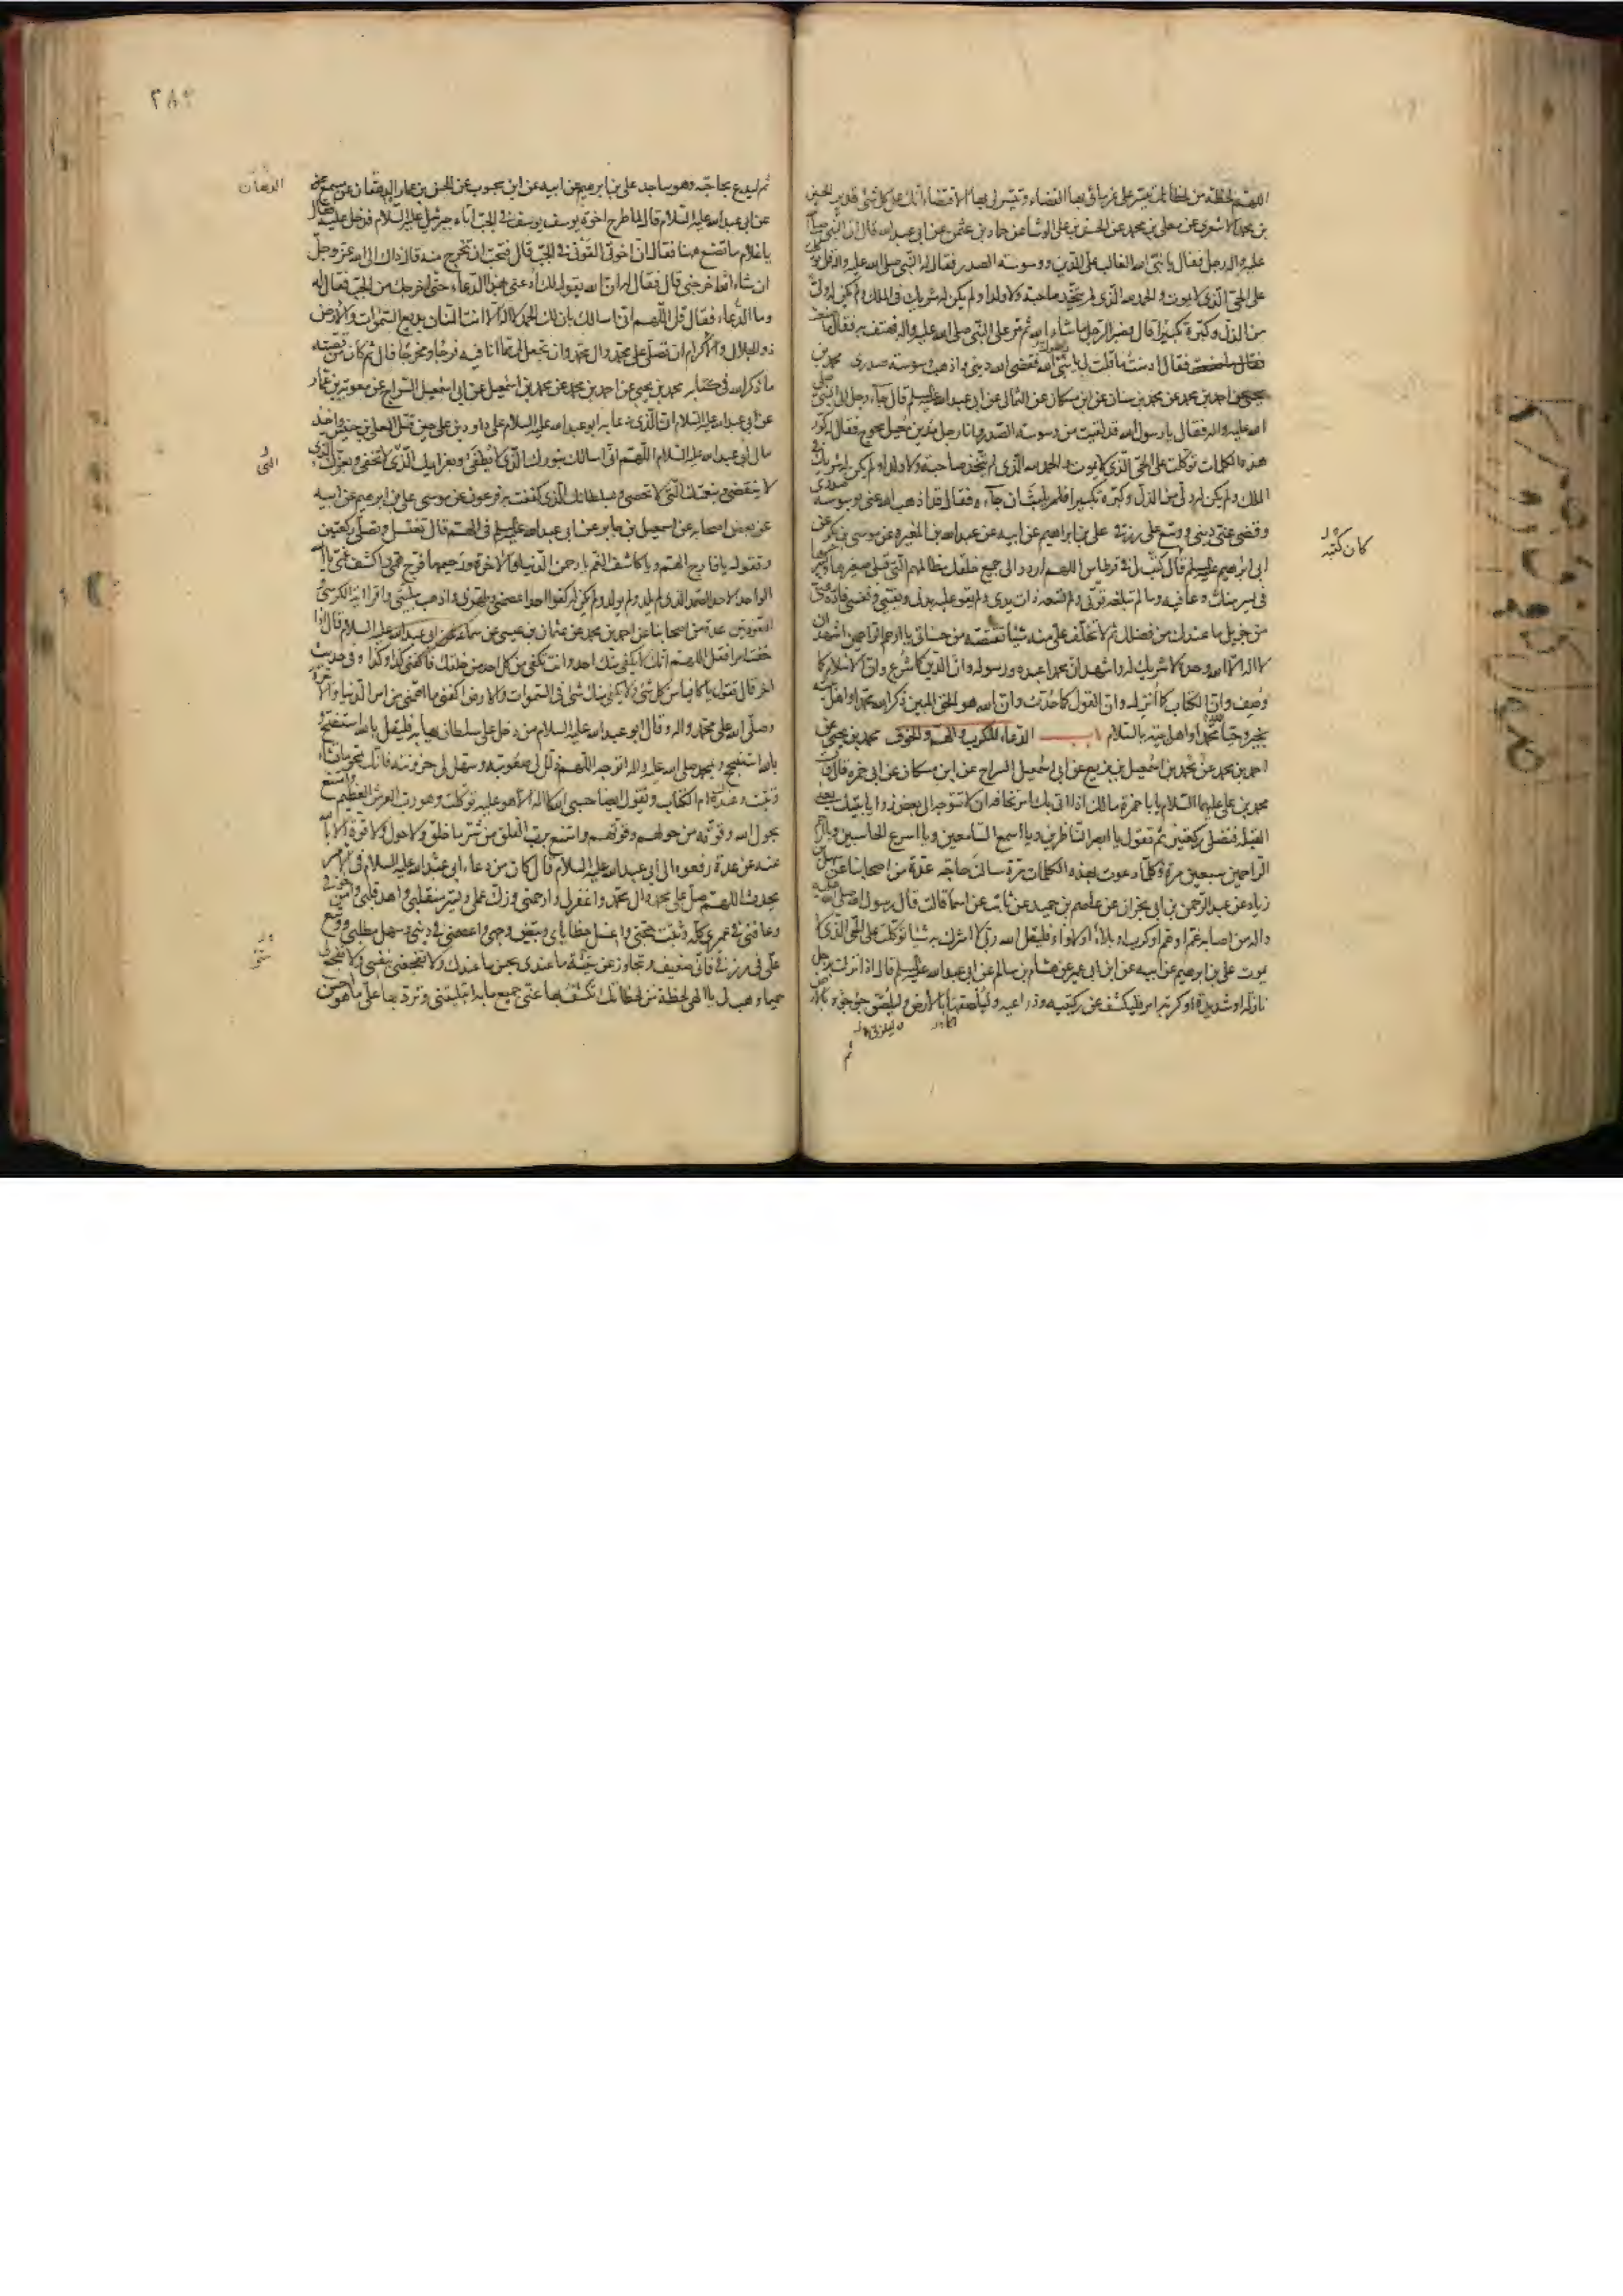 اللهم لحظة من لحظاتك تيسر على غرمائى بها القضاء وتيسر لى بها الاقتضاء انك على كل شئ قدير الحسين
بن محمد الاشعرى عن معلى بن محمد عن الحسن بن على الوشا عن حماد بن عثمن عن ابى عبد الله قال اتى النبى صلى الله
عليه واله رجل فقال يا نبى الله الغالب على الدين ووسوسة الصدر فقال له النبى صلى الله عليه واله قل توكلت
على الحى الذى لا يموت والحمد لله الذى لم يتخذ صاحبة ولا ولدا ولم يكن له شريك فى الملك ولم يكن له ولى
من الذل وكبره تكبيرا قال فصبر الرجل ما شاء الله ثم مر على النبى صلى الله عليه واله فهتف به فقال ما صنعت
فقال ادمنت ما قلت لى يا رسول الله فقضى الله دينى واذهب وسوسة صدرى محمد بن
يحيى عن احمد بن محمد عن محمد بن سنان عن ابن مسكان عن الثمالى عن ابى عبد الله عليه السلم قال جاء رجل الى النبى صلى
الله عليه واله فقال يا رسول الله قد لقيت من وسوسة الصدر وانا رجل مدين معيل محوج فقال له كرر
هذه الكلمات توكلت على الحى الذى لا يموت والحمد لله الذى لم يتخذ صاحبة ولا ولدا ولم يكن له شريك فى
الملك ولم يكن له ولى من الذل وكبره تكبيرا فلم يلبث ان جاءه فقال قد اذهب الله عنى وسوسة صدرى
وقضى عنى دينى ووسع على رزقى على بن ابراهيم عن ابيه عن عبد الله بن المغيرة عن موسى بن بكر عن
ابى ابراهيم عليه السلم قال كتب لى فى قرطاس اللهم اردد الى جميع خلقك مظالمهم التى قبلى صغيرها وكبيرها
فى يسر منك وعافية وما لم تبلغه قوتى ولم تسعه ذات يدى ولم يقو عليه بدنى ويقينى ونفسى فاده عنى
من جزيل ما عندك من فضلك ثم لا تخلف على منه شيئا تقضيه من حسناتى يا ارحم الراحمين اشهد ان
لا اله الا الله وحده لا شريك له واشهد ان محمدا عبده ورسوله وان الدين كما شرع وان الاسلام كما
وصف وان الكتاب كما انزل وان القول كما حدث وان الله هو الحق المبين ذكر الله محمدا واهل بيته
بخير وحيا محمدا واهل بيته بالسلام باب الدعاء للكرب والهم والخوف محمد بن يحيى عن
احمد بن محمد عن محمد بن اسمعيل بن بزيع عن ابى اسمعيل السراج عن ابن مسكان عن ابى حمزة قال قال
محمد بن على عليهما السلام يا با حمزة مالك اذا اتى بك امر تخافه ان لا تتوجه الى بعض زوايا بيتك يعنى
القبلة فتصلى ركعتين ثم تقول يا ابصر الناظرين ويا اسمع السامعين ويا اسرع الحاسبين ويا ارحم
الراحمين سبعين مرة وكلما دعوت بهذه الكلمات مرة سالت حاجة عدة من اصحابنا عن سهل بن
زياد عن عبد الرحمن بن ابى نجران عن عاصم بن حميد عن ثابت عن اسما قالت قال رسول الله صلى الله عليه
واله من اصابه هم او غم او كرب او بلاء او لاواء فليقل الله ربى لا اشرك به شيئا توكلت على الحى الذى لا
يموت على بن ابرهيم عن ابيه عن ابن ابى عمير عن هشام بن سالم عن ابى عبد الله عليه السلم قال اذا نزلت برجل
نازلة او شديدة او كربه امر فليكشف عن ركبتيه وذراعيه وليلصقهما بالارض وليلصق جؤجؤه بالارض
ثم
كان كتبه
٢٨٢
ثم ليدع بحاجته وهو ساجد على بن ابرهيم عن ابيه عن ابن محبوب عن الحسن بن عمار الدهان عن مسمع
عن ابى عبد الله عليه السلام قال لما طرح اخوة يوسف يوسف فى الجب اتاه جبرئيل عليه السلام فدخل عليه فقال
يا غلام ما تصنع ههنا فقال ان اخوتى القونى فى الجب قال فتحب ان تخرج منه قال ذاك الى الله عز وجل
ان شاء اخرجنى قال فقال له ان الله يقول لك ادعنى بهذا الدعاء حتى اخرجك من الجب فقال له
وما الدعاء فقال قل اللهم انى اسالك بان لك الحمد لا اله الا انت المنان بديع السموات والارض
ذو الجلال والاكرام ان تصلى على محمد وال محمد وان تجعل لى مما انا فيه فرجا ومخرجا قال ثم كان من قصته
ما ذكر الله فى كتابه محمد بن يحيى عن احمد بن محمد عن محمد بن اسمعيل عن ابى اسمعيل السراج عن معوية بن عمار
عن ابى عبد الله عليه السلام ان الذى دعا به ابو عبد الله عليه السلام على داود بن على حين قتل المعلى بن خنيس واخذ
مال ابى عبد الله عليه السلام اللهم انى اسالك بنورك الذى لا يطفى وبعزايمك الذى لا تخفى وبعزك الذى
لا ينقضى وبنعمتك التى لا تحصى وبسلطانك الذى كففت به فرعون عن موسى على بن ابرهيم عن ابيه
عن بعض اصحابه عن اسمعيل بن جابر عن ابى عبد الله عليه السلم فى الهم قال تغتسل وتصلى ركعتين
وتقول يا فارج الهم ويا كاشف الغم يا رحمن الدنيا والاخرة ورحيمهما فرج همى واكشف غمى يا الله
الواحد الاحد الصمد الذى لم يلد ولم يولد ولم يكن له كفوا احد اعصمنى وطهرنى واذهب ببليتى واقرا اية الكرسى
والمعوذتين عدة من اصحابنا عن احمد بن محمد عن عثمان بن عيسى عن سماعة عن ابى عبد الله عليه السلام قال اذا
خفت امرا فقل اللهم انك لا يكفى منك احد وانت تكفى من كل احد من خلقك فاكفنى كذا وكذا وفى حديث
اخر قال تقول يا كافيا من كل شئ ولا يكفى منك شئ فى السموات والارض اكفنى ما اهمنى من امر الدنيا والاخرة
وصلى الله على محمد واله وقال ابو عبد الله عليه السلام من دخل على سلطان يهابه فليقل بالله استفتح و
بالله استنجح وبمحمد صلى الله عليه واله اتوجه اللهم ذلل لى صعوبته وسهل لى حزونته فانك تمحو ما تشاء
وتثبت وعندك ام الكتاب وتقول ايضا حسبى الله لا اله الا هو عليه توكلت وهو رب العرش العظيم وامتنع
بحول الله وقوته من حولهم وقوتهم وامتنع برب الفلق من شر ما خلق ولا حول ولا قوة الا بالله
عنه عن عدة رفعوه الى ابى عبد الله عليه السلام قال كان من دعاء ابى عبد الله عليه السلام فى الامر
يحدث اللهم صل على محمد وال محمد واغفر لى وارحمنى وزك عملى ويسر منقلبى واهد قلبى وامن خوفى
وعافنى فى عمرى كله وثبت حجتى واغسل خطاياى وبيض وجهى واعصمنى فى دينى وسهل مطلبى ووسع
على فى رزقى فانى ضعيف وتجاوز عن سيئ ما عندى بحسن ما عندك ولا تفجعنى بنفسى ولا تفجع لى
حميما وهب لى يا الهى لحظة من لحظاتك تكشف بها عنى جميع ما به ابتليتنى وترد بها على ما هو احسن
الدهان
التى